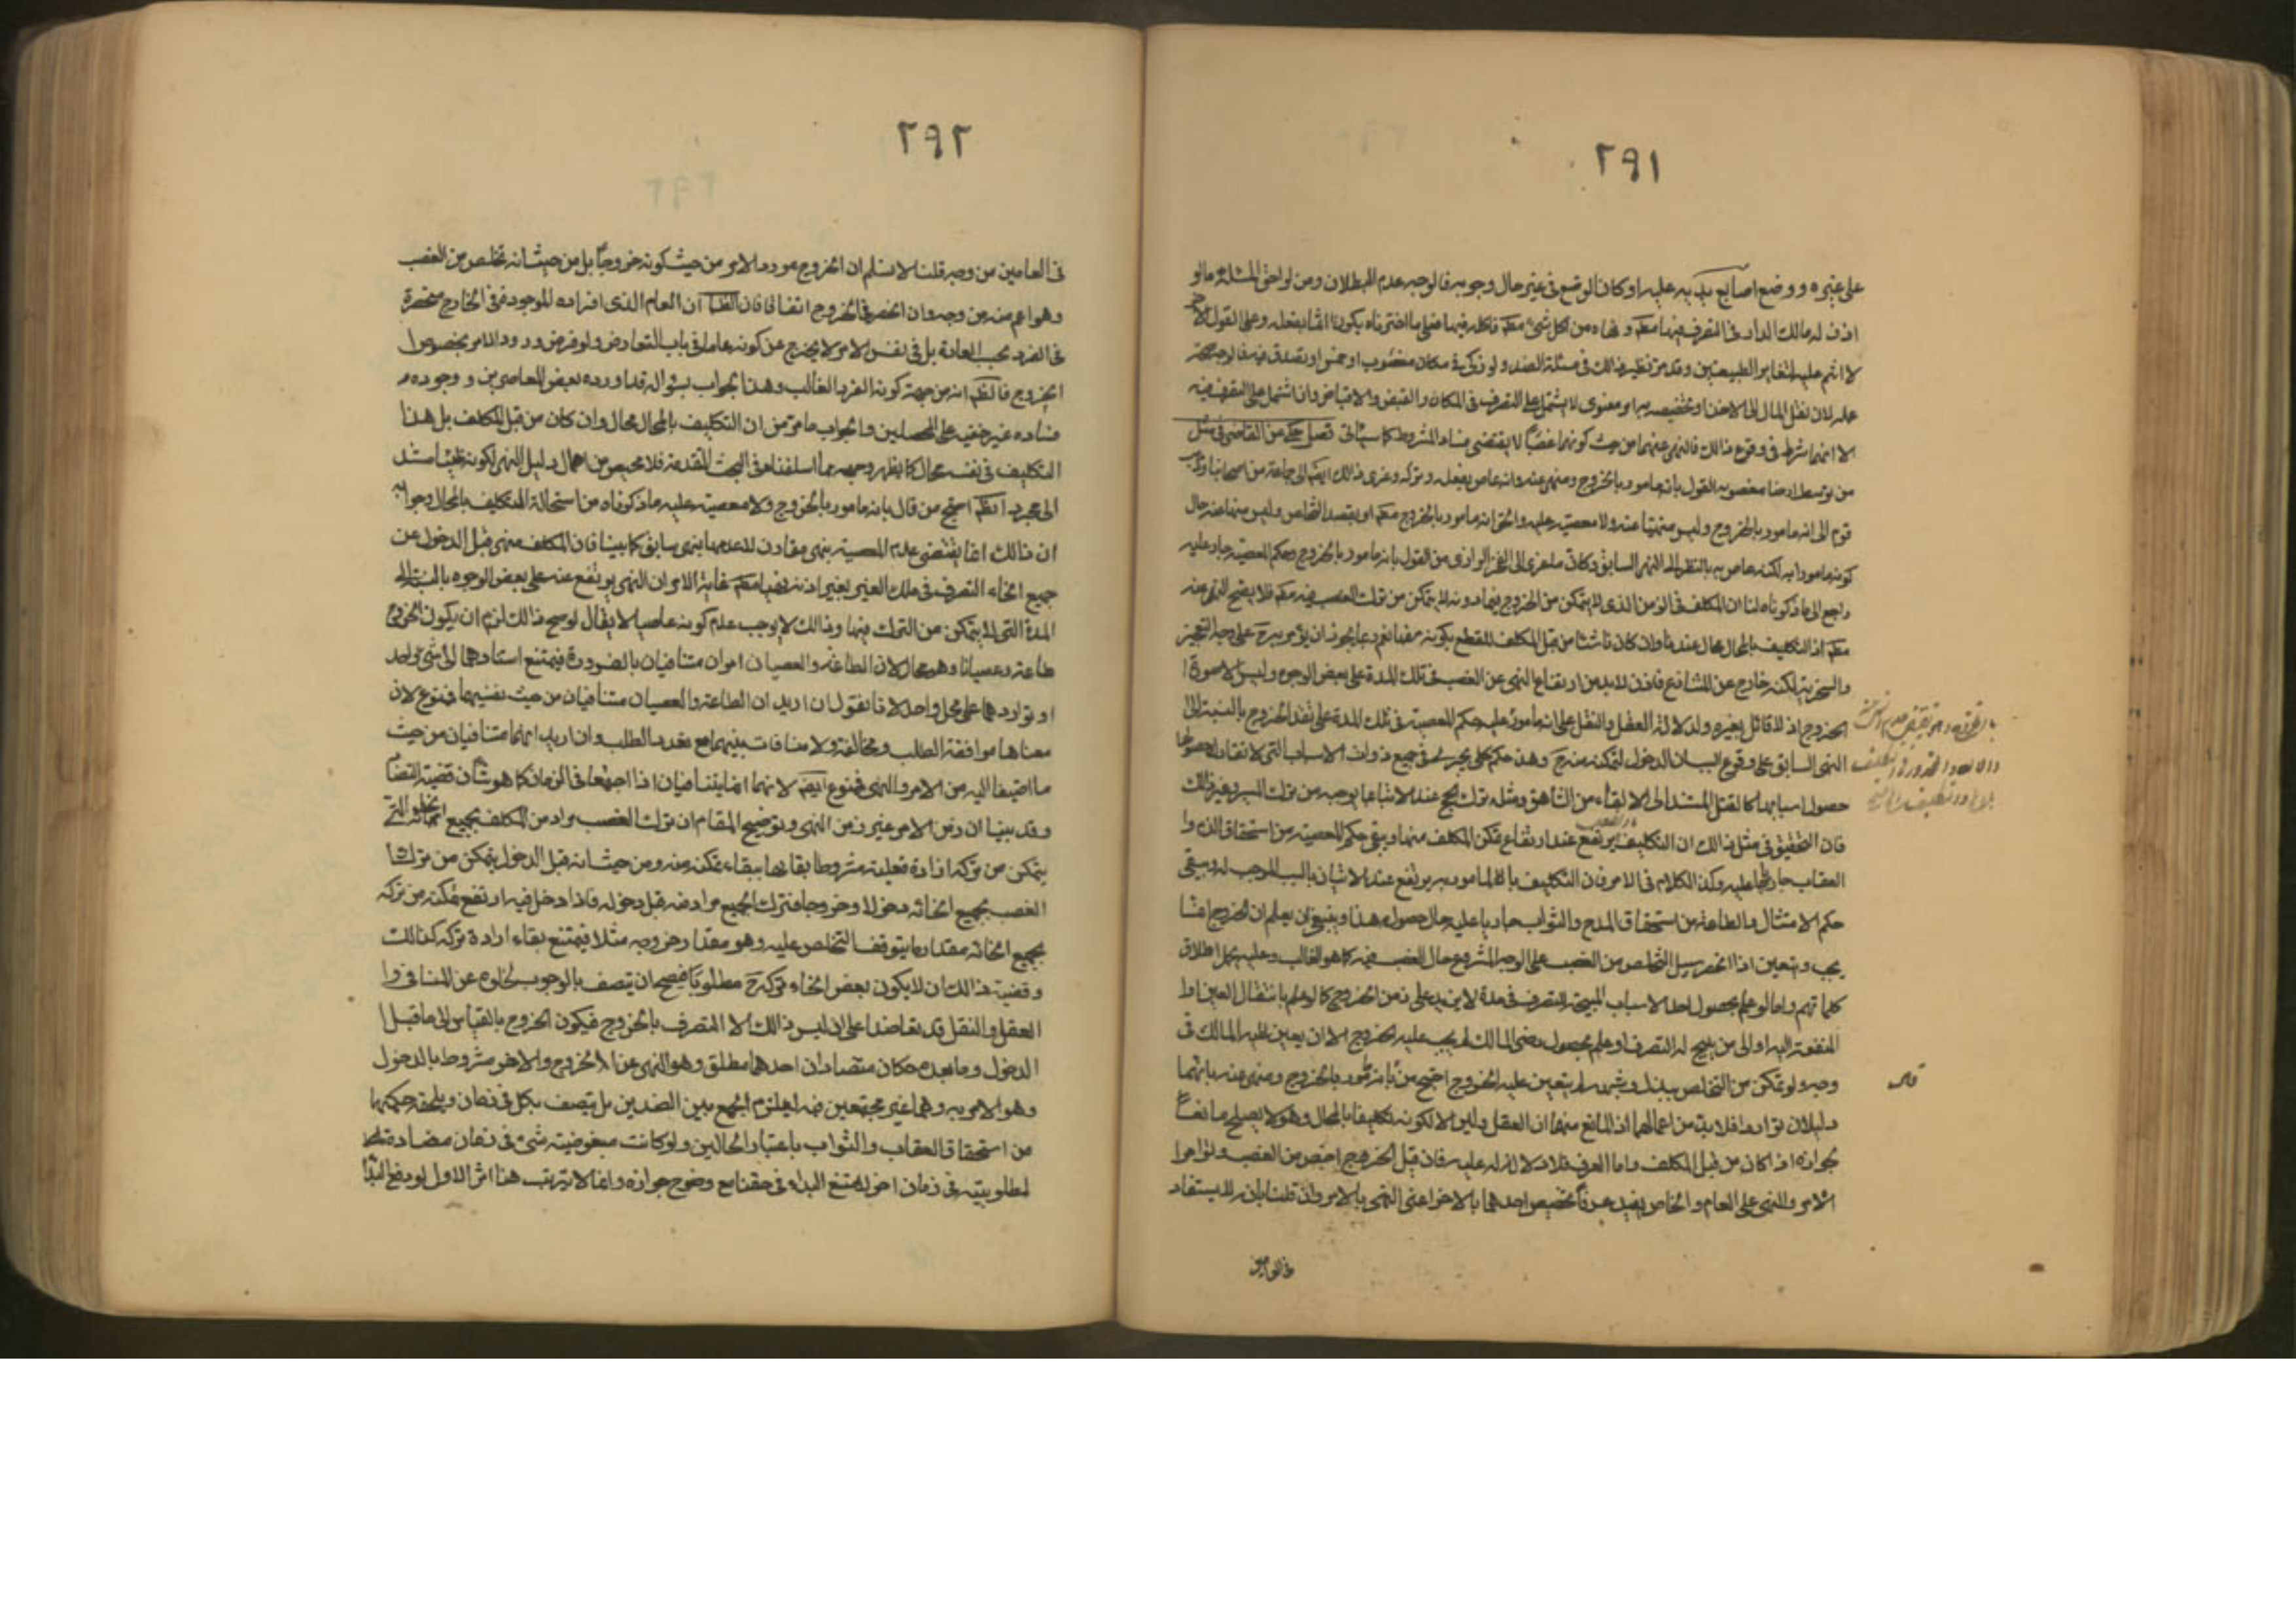 ٢٩١
على غيره ووضع اصابع يديه عليه او كان الوضع في غير حال وجوبه فالوجه عدم البطلان ومن لواحق المسئلة ما لو
اذن له مالك الدار في التصرف فيها مطلقا ونهاه من اكل شئ مطلقا فاكله فيها فعلى ما اخترناه يكون اثما بفعله وعلى القول الاخر
لا اثم عليه لتغاير الطبيعتين وقد مر نظير ذلك في مسئلة الضد ولو زكى في مكان مغصوب او خمس او تصدق فيه فالوجه صحة
عمله لان نقل المال الى الاخذ او تخصيصه به امر معنوى لا يشتمل على التصرف في المكان والقبض والاقباض وان اشتمل على التصرف فيه
الا انهما شرط في وقوع ذلك فالنهى عنهما من حيث كونهما غصبا لا يقتضى فساد المشروط كما سيأتى فصل حكى عن القاضى في مثل
من توسط ارضا مغصوبة القول بانه مامور بالخروج ومنهى عنه وانه عاص بفعله وتركه وعزى ذلك ايضا الى جماعة من اصحابنا وذهب
قوم الى انه مامور بالخروج وليس منهيا عنه ولا معصية عليه والحق انه مامور بالخروج مطلقا او بقصد التخلص وليس منهيا عنه حال
كونه مامورا به لكنه عاص به بالنظر الى النهى السابق وكان ما عزى الى الفخر الرازى من القول بانه مامور بالخروج وحكم المعصية جار عليه
راجع الى ما ذكرناه لنا ان المكلف في الزمن الذى لا يتمكن من الخروج فيما دونه لا يتمكن من ترك الغصب فيه مطلقا فلا يصح النهى عنه
مطلقا اذ التكليف بالمحال محال عندنا وان كان ناشئا من قبل المكلف للقطع بكونه سفها نعم ربما يجوز ان يؤمر به ح على وجه التعجيز
والسخرية لكنه خارج عن المتنازع فاذن لا بد من ارتفاع النهى عن الغصب في تلك المدة على بعض الوجوه وليس الا صورة ا
الخروج اذ لا قائل بغيره ولدلالة العقل والنقل على انه مامور عليه حكم المعصية في تلك المدة على تقدير الخروج بالنسبة الى
النهى السابق على وقوع السبب اعنى الدخول لتمكنه منه ح وهذا حكم كلى يجرى في جميع ذوات الاسباب التى لا تقارن حصولها
حصول اسبابها كالقتل المستند الى الالقاء من الشاهق ومثله ترك الحج عند الاتيان بما يوجبه من ترك المسير وغير ذلك
فان التحقيق في مثل ذلك ان التكليف يرتفع عند ارتفاع تمكن المكلف منها ويبقى حكم المعصية من استحقاق الذم وا
العقاب جاريا عليه وكذا الكلام في الامر فان التكليف بالمامور به يرتفع عند الاتيان بالسبب الموجب له ويبقى
حكم الامتثال والطاعة من استحقاق المدح والثواب جاريا عليه حال حصوله هذا وينبغى ان يعلم ان الخروج انما
يجب ويتعين اذا انحصر سبيل التخلص من الغصب على الوجه المشروع حال الغصب فيه كما هو الغالب وعليه يحمل اطلاق
كلماتهم واما لو علم بحصول احد الاسباب المبيحة للتصرف في مدة لا يزيد على زمن الخروج كما لو علم بانتقال العين او ا
المنفعة اليه او الى من يبيح له التصرف او علم بحصول رضى المالك لم يجب عليه الخروج الا ان يعين عليه المالك في
وجه ولو تمكن من التخلص ببذل وشبهه لم يتعين عليه الخروج احتج من قال بانه مامور بالخروج ومنهى عنه بانهما
دليلان تواردا فلا بد من اعمالهما اذ المانع منهما ان العقل وليس الا لكونه تكليفا بالمحال وهو لا يصلح مانعا
لجوازه اذا كان من قبل المكلف واما العرف فلا دلالة له عليه فان قيل الخروج اخص من الغصب وتوارد ا
الامر والنهى على العام والخاص يفيد عرفا تخصيص احدهما بالاخر اعنى النهى بالامر وان قلنا بانه لا يستفاد
في العامين
٢٩٢
في العامين من وجه قلنا لا نسلم ان الخروج مورد الامر من حيث كونه خروجا بل من حيث انه تخلص من الغصب
وهو اعم منه من وجه وان انحصر في الخروج اتفاقا فان الظاهر ان العام الذى افراده الموجودة في الخارج منحصرة
في الفرد بحسب العادة بل في نفس الامر لا يخرج عن كونه عاما في باب التعارض ولو فرض ورود الامر بخصوص ا
الخروج فالظاهر انه من جهة كونه الفرد الغالب وهذا الجواب بسؤاله قد اورده بعض المعاصرين ووجوده
فساده غير خفية على المحصلين والجواب ما مر من ان التكليف بالمحال محال وان كان من قبل المكلف بل هذا
التكليف في نفسه محال كما يظهر وجهه مما اسلفناه في البحث المتقدم فلا محيص من اهمال دليل النهى لكونه
الى مجرد احتج من قال بانه مامور بالخروج ولا معصية عليه ما ذكرناه من استحالة التكليف بالمحال وجوابه
ان ذلك انما يقتضى عدم المعصية بنهى مقارن لا عدمها بنهى سابق كما بينا فان المكلف منهى قبل الدخول عن
جميع انحاء التصرف في ملك الغير بغير اذنه نهيا مطلقا غاية الامر ان النهى يرتفع عنه على بعض الوجوه بالنسبة الى
المدة التى لا يتمكن من الترك فيها وذلك لا يوجب عدم كونه عاصيا لا يقال لو صح ذلك لزم ان يكون الخروج
طاعة وعصيانا وهو محال لان الطاعة والعصيان امران متنافيان بالضرورة فيمتنع استنادهما الى شئ واحد
او تواردهما على محل واحد لانا نقول ان اريد ان الطاعة والعصيان متنافيان من حيث نفسهما فممنوع لان
معناها موافقة الطلب ومخالفته ولا منافات بينهما مع تعدد الطلب وان اريد انهما متنافيان من حيث
ما اضيفا اليه من الامر والنهى فممنوع ايضا لانهما انما يتنافيان اذا اجتمعا في الزمان كما هو شان قضية التضاد
وقد بينا ان زمن الامر غير زمن النهى وتوضيح المقام ان ترك الغصب مراد من المكلف بجميع انحائه التى
يتمكن من تركه ارادة فعلية مشروطا بقائها ببقاء تمكنه منه ومن حيث انه قبل الدخول يتمكن من ترك
الغصب بجميع انحائه دخولا وخروجا فترك الجميع مراد منه قبل دخوله فاذا دخل فيه ارتفع تمكنه من تركه
بجميع انحائه مقدار ما يتوقف التخلص عليه وهو مقدار خروجه مثلا فيمتنع بقاء ارادة تركه كذلك
وقضية ذلك ان لا يكون بعض انحاء تركه ح مطلوبا فيصح ان يتصف بالوجوب لخلوه عن المنافى وا
العقل والنقل قد تعاضدا على ان ليس ذلك الا التصرف بالخروج فيكون الخروج بالقياس الى ما قبل ا
الدخول وما بعده حكمان متضادان احدهما مطلق وهو النهى عن الخروج والاخر مشروط بالدخول
وهو الامر به وهما غير مجتمعين فيه ليلزم الجمع بين الضدين بل يتصف بكل في زمان ويلحقه حكمهما
من استحقاق العقاب والثواب باعتبار الحالين ولو كانت مبغوضية شئ في زمان مضادة
لمطلوبيته في زمان اخر لامتنع البداء في حقنا مع وضوح جوازه وانما لا ترتب هنا اثر الاول لرفع البداء